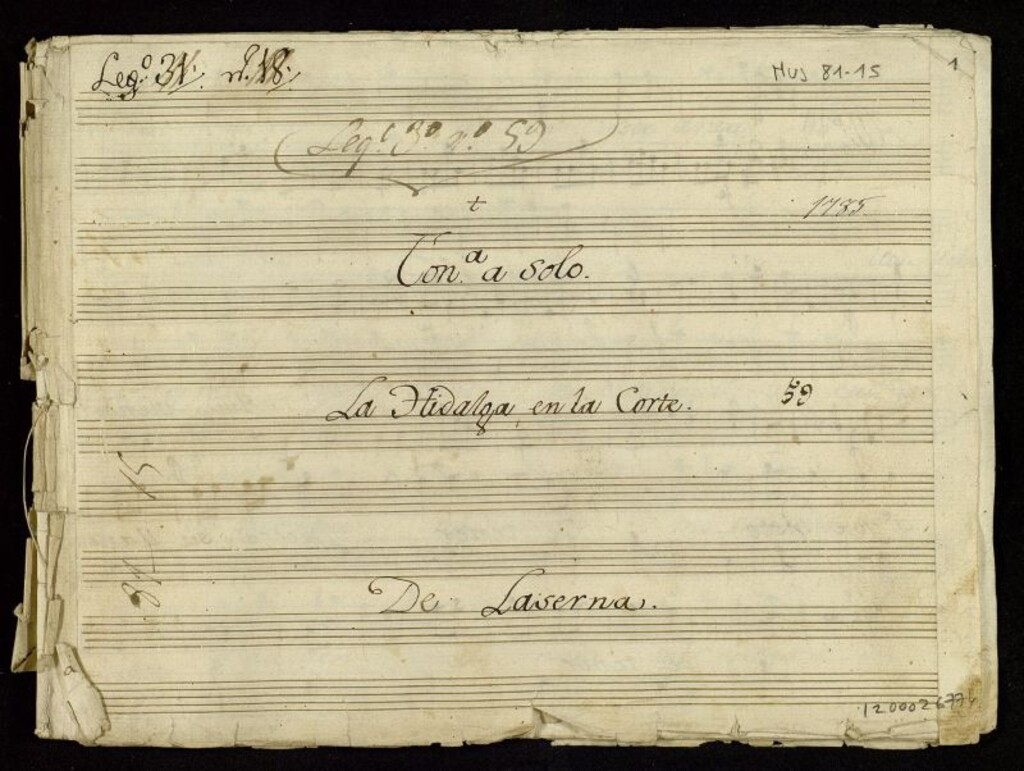 Leg.º 31. n.18.
Mus 81-15
1
Leg.º 3º n.º 59
+
1785
Ton.ª a solo.
La Hidalga en la Corte.
59
De Laserna.
a
1200026774